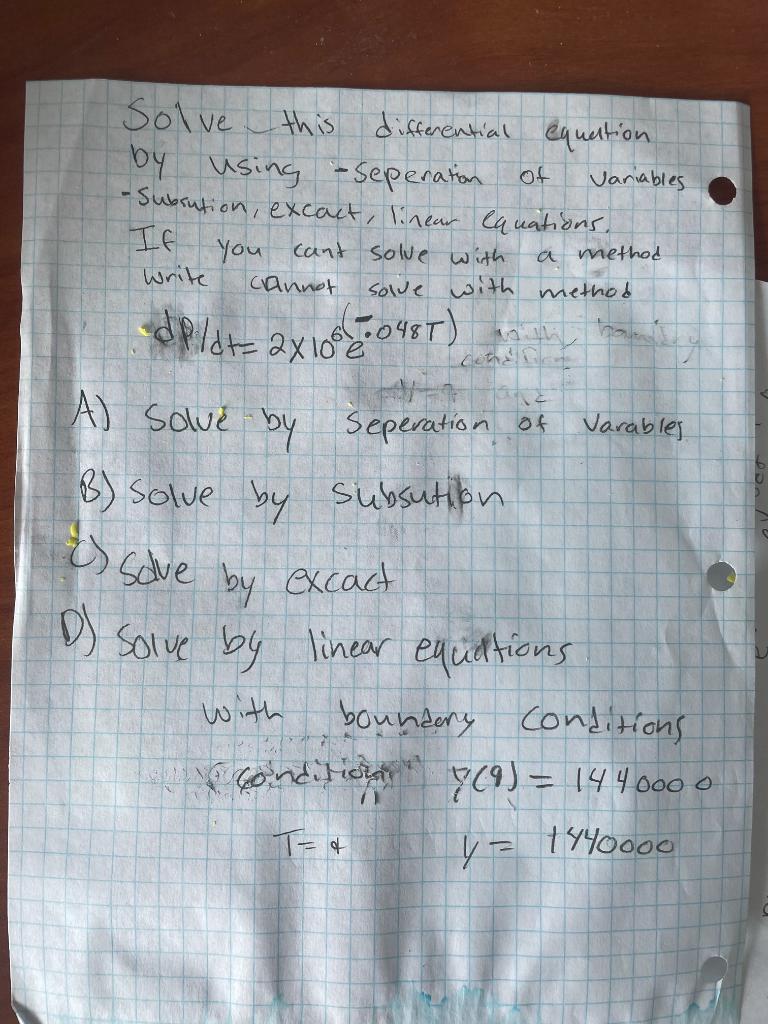 Solve this differential equation
by using - Seperation of variables
- Subsution, excact, linear Equations.
If you cant solve with a method
write cannot solve with method
dP/dt = 2x10^6 e^(-.048T)
A) Solve by Seperation of Varables
B) Solve by Subsution
C) Solve by excact
D) Solve by linear equations
with boundary Conditions
condition y(9) = 1440000
T= y = 1440000